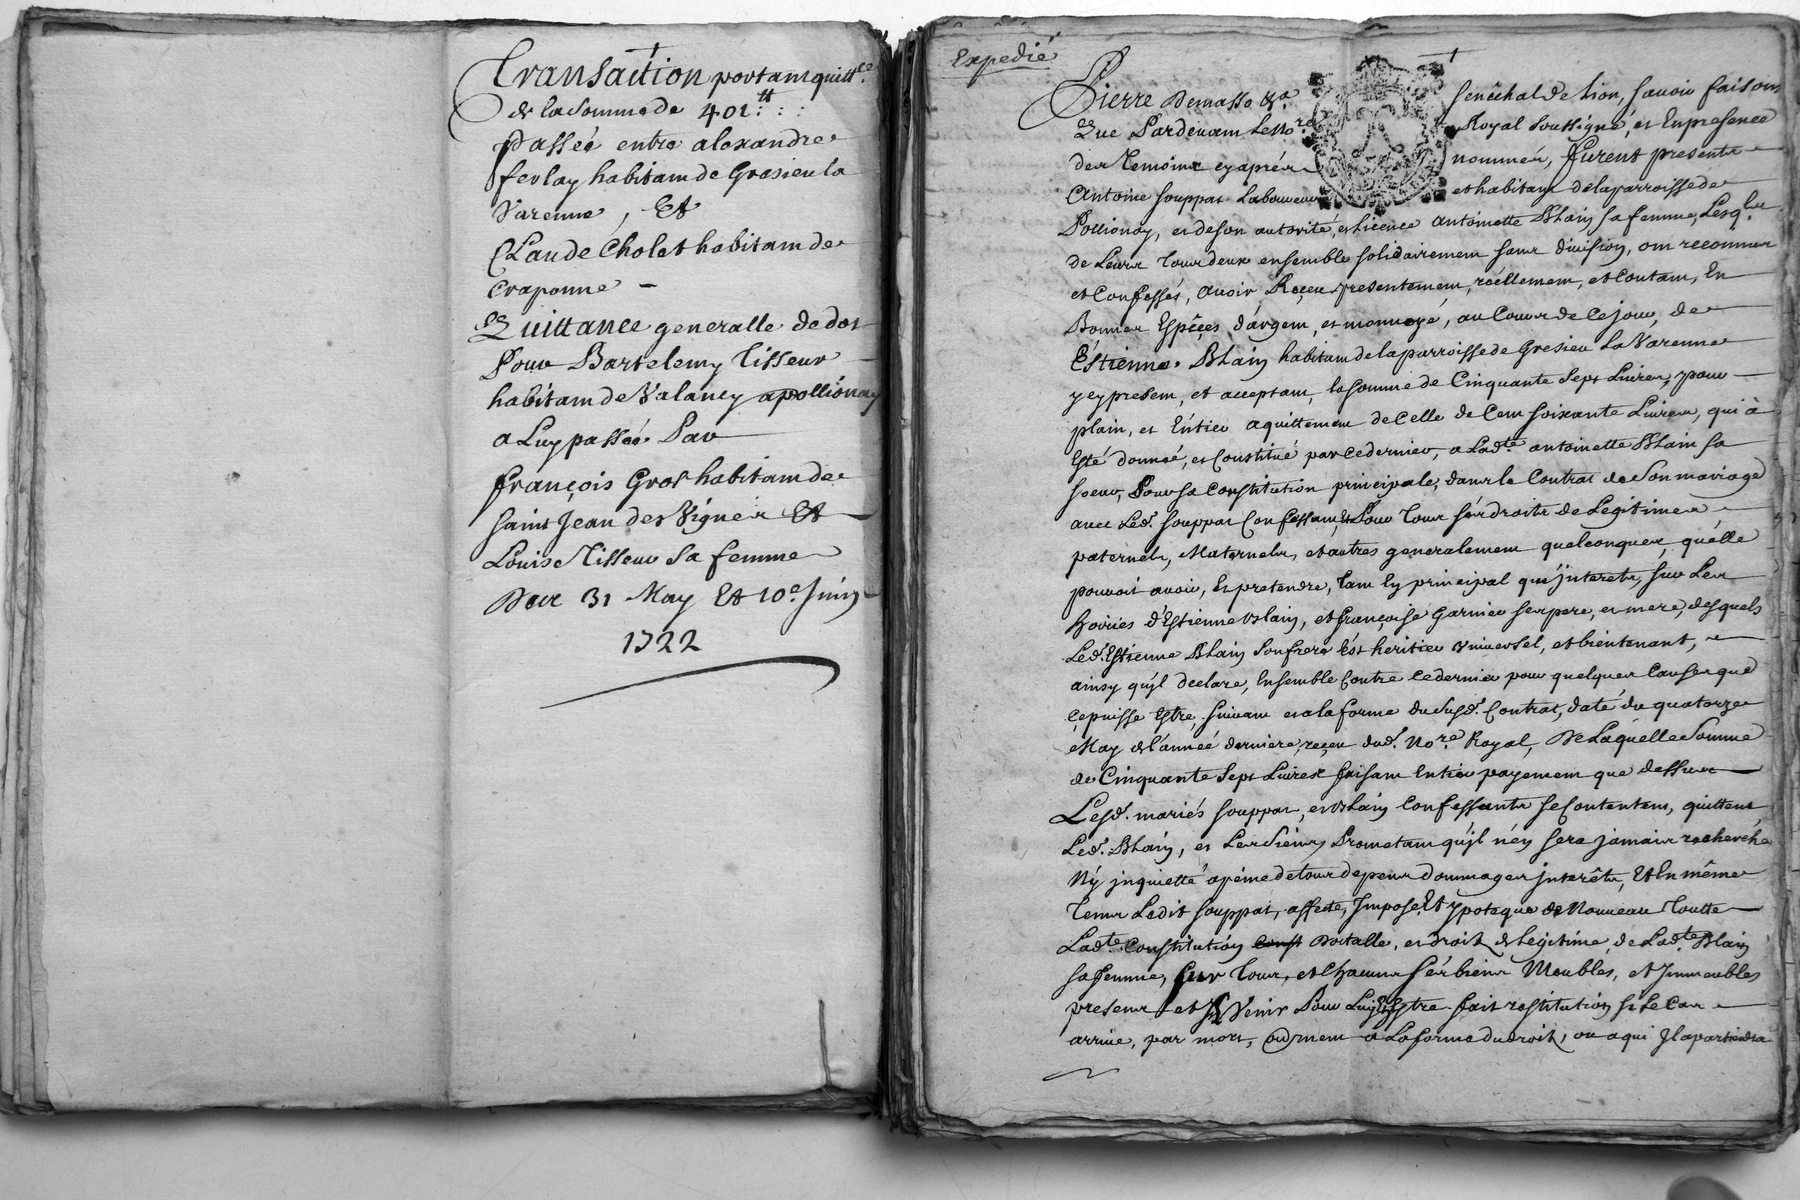 Transaction portant quitt.ce
de la somme de 401 tt
Passée entre alexandre
ferlay habitant de Gresieu la
Varenne, Et
Claude Cholet habitant de
Craponne –
Quittance generalle de dot
Pour Bartelemy Tisseur
habitant de Valancy a pollionay
a Luy passée Par
françois Gros habitant de
Saint Jean des Vignes Et
Louise Tisseur Sa femme
Des 31 May Et 10.e Juin
1722
Expedié
Pierre Demasso &.a Senêchal de Lion, Savoir faisons
Que Pardevant Le No.re Royal Soussigné, et En presence
des Temoins cy aprés nommés, furent presents
Antoine Souppat Laboureur et habitant de la parroisse de
Pollionay, et de son autorité, et licence antoinette Blain Sa femme, Lesq.ls
de Leurs Tour deux ensemble solidairement sans division, ont reconnus
et Confessés, avoir Reçeu presentement, réellement, et Contant, En
Bonnes Espêçes d'argent, et monnoyé, au Cours de Ce jour, de
Éstienne Blain habitant de la parroisse de Gresieu La Varenne
y cy present, et acceptant, la somme de Cinquante Sept Livres, pour
plain, et Entier aquittement de Celle de Cent soixante Livres, qui à
Esté donnée, et Constitué par Ce dernier, a Lad.te antoinette Blain Sa
soeur, Pour Sa Constitution principale, dans le Contrat de Son mariage
avec Led. Souppat Confessant, Et Pour Tous sés droits de Legitimes
paternels, Maternels, et autres generalement quelconques, qu'elle
pouvoit avoir, et pretendre, tant En principal qu'jnterets, sur Les
hoiries d'Estienne Blain, et françoise Garnier ses pere, et mere, desquels
Led. Estienne Blain son frere Est heritier universel, et bientenant,
ainsy qu'jl declare, Ensemble Contre Ce dernier pour quelques Causes que
Çe puisse Estre, suivant et a la forme du Susd. Contrat, daté du quatorze
May de l'année derniere, reçeu dud. No.re Royal, De Laquelle Somme
de Cinquante Sept Livres faisant Entier payement que dessus
Lesd. mariés Souppat, et Blain Confessants se Contentent, quittent
Led. Blain, et Les Siens, Promettant qu'jl n'en sera jamais recherché
Ny jnquietté a péine de tous depens dommages jnterêts, Et En même
Tems Ledit Souppat, affecte, Jmpose, Et ypoteque de Nouveau Toutte
Lad.te Constitution Const Dotalle, et droits de Legitime, de Lad.te Blain
Sa femme, Sur Tous, et Chacuns sés biens Meubles, et Jmmeubles
presens et à Venir Pour Luy Estre fait restitution si Le Cas
arrive, par mort, autrement a La forme du droit, ou a qui Jl apartiendra